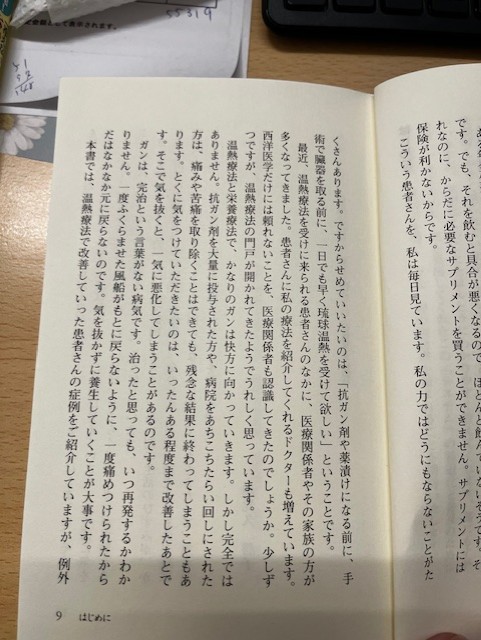 です。でも、それを飲むと具合が悪くなるので、ほとんど飲んでいないそうです。
れなのに、からだに必要なサプリメントを買うことができません。サプリメントには
保険が利かないからです。
こういう患者さんを、私は毎日見ています。私の力ではどうにもならないことがた
くさんあります。ですからせめていいたいのは、「抗ガン剤や薬漬けになる前に、手
術で臓器を取る前に、一日でも早く琉球温熱を受けて欲しい」ということです。
最近、温熱療法を受けに来られる患者さんのなかに、医療関係者やその家族の方が
多くなってきました。患者さんに私の療法を紹介してくれるドクターも増えています。
西洋医学だけには頼れないことを、医療関係者も認識してきたのでしょうか。少しず
つですが、温熱療法の門戸が開かれてきたようでうれしく思っています。
温熱療法と栄養療法で、かなりのガンは快方に向かっていきます。しかし完全では
ありません。抗ガン剤を大量に投与された方や、病院をあちこちたらい回しにされた
方は、痛みや苦痛を取り除くことはできても、残念な結果に終わってしまうこともあ
ります。とくに気をつけていただきたいのは、いったんある程度まで改善したあとで
す。そこで気を抜くと、一気に悪化してしまうことがあるのです。
ガンは、完治という言葉がない病気です。治ったと思っても、いつ再発するかわか
りません。一度ふくらませた風船がもとに戻らないように、一度痛めつけられたから
だはなかなか元に戻らないのです。気を抜かずに養生していくことが大事です。
本書では、温熱療法で改善していった患者さんの症例をご紹介していますが、例外
9 はじめに
として表示されます。
55319